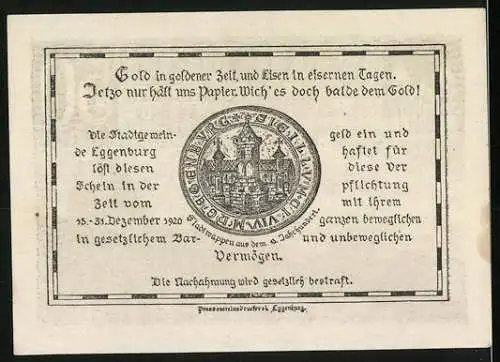 Gold in goldener Zeit, und Eisen in eisernen Tagen.
Jetzo nur hält uns Papier. Wich' es doch balde dem Gold!
Die Stadtgemein-
de Eggenburg
löst diesen
Schein in der
Zeit vom
15.-31. Dezember 1920
in gesetzlichem Bar-
geld ein und
haftet für
diese Ver
pflichtung
mit ihrem
ganzen beweglichen
und unbeweglichen
Vermögen.
Stadtwappen aus dem Jahrhundert.
Die Nachahmung wird gesetzlich bestraft.
Pressvereinsdruckerei Eggenburg.